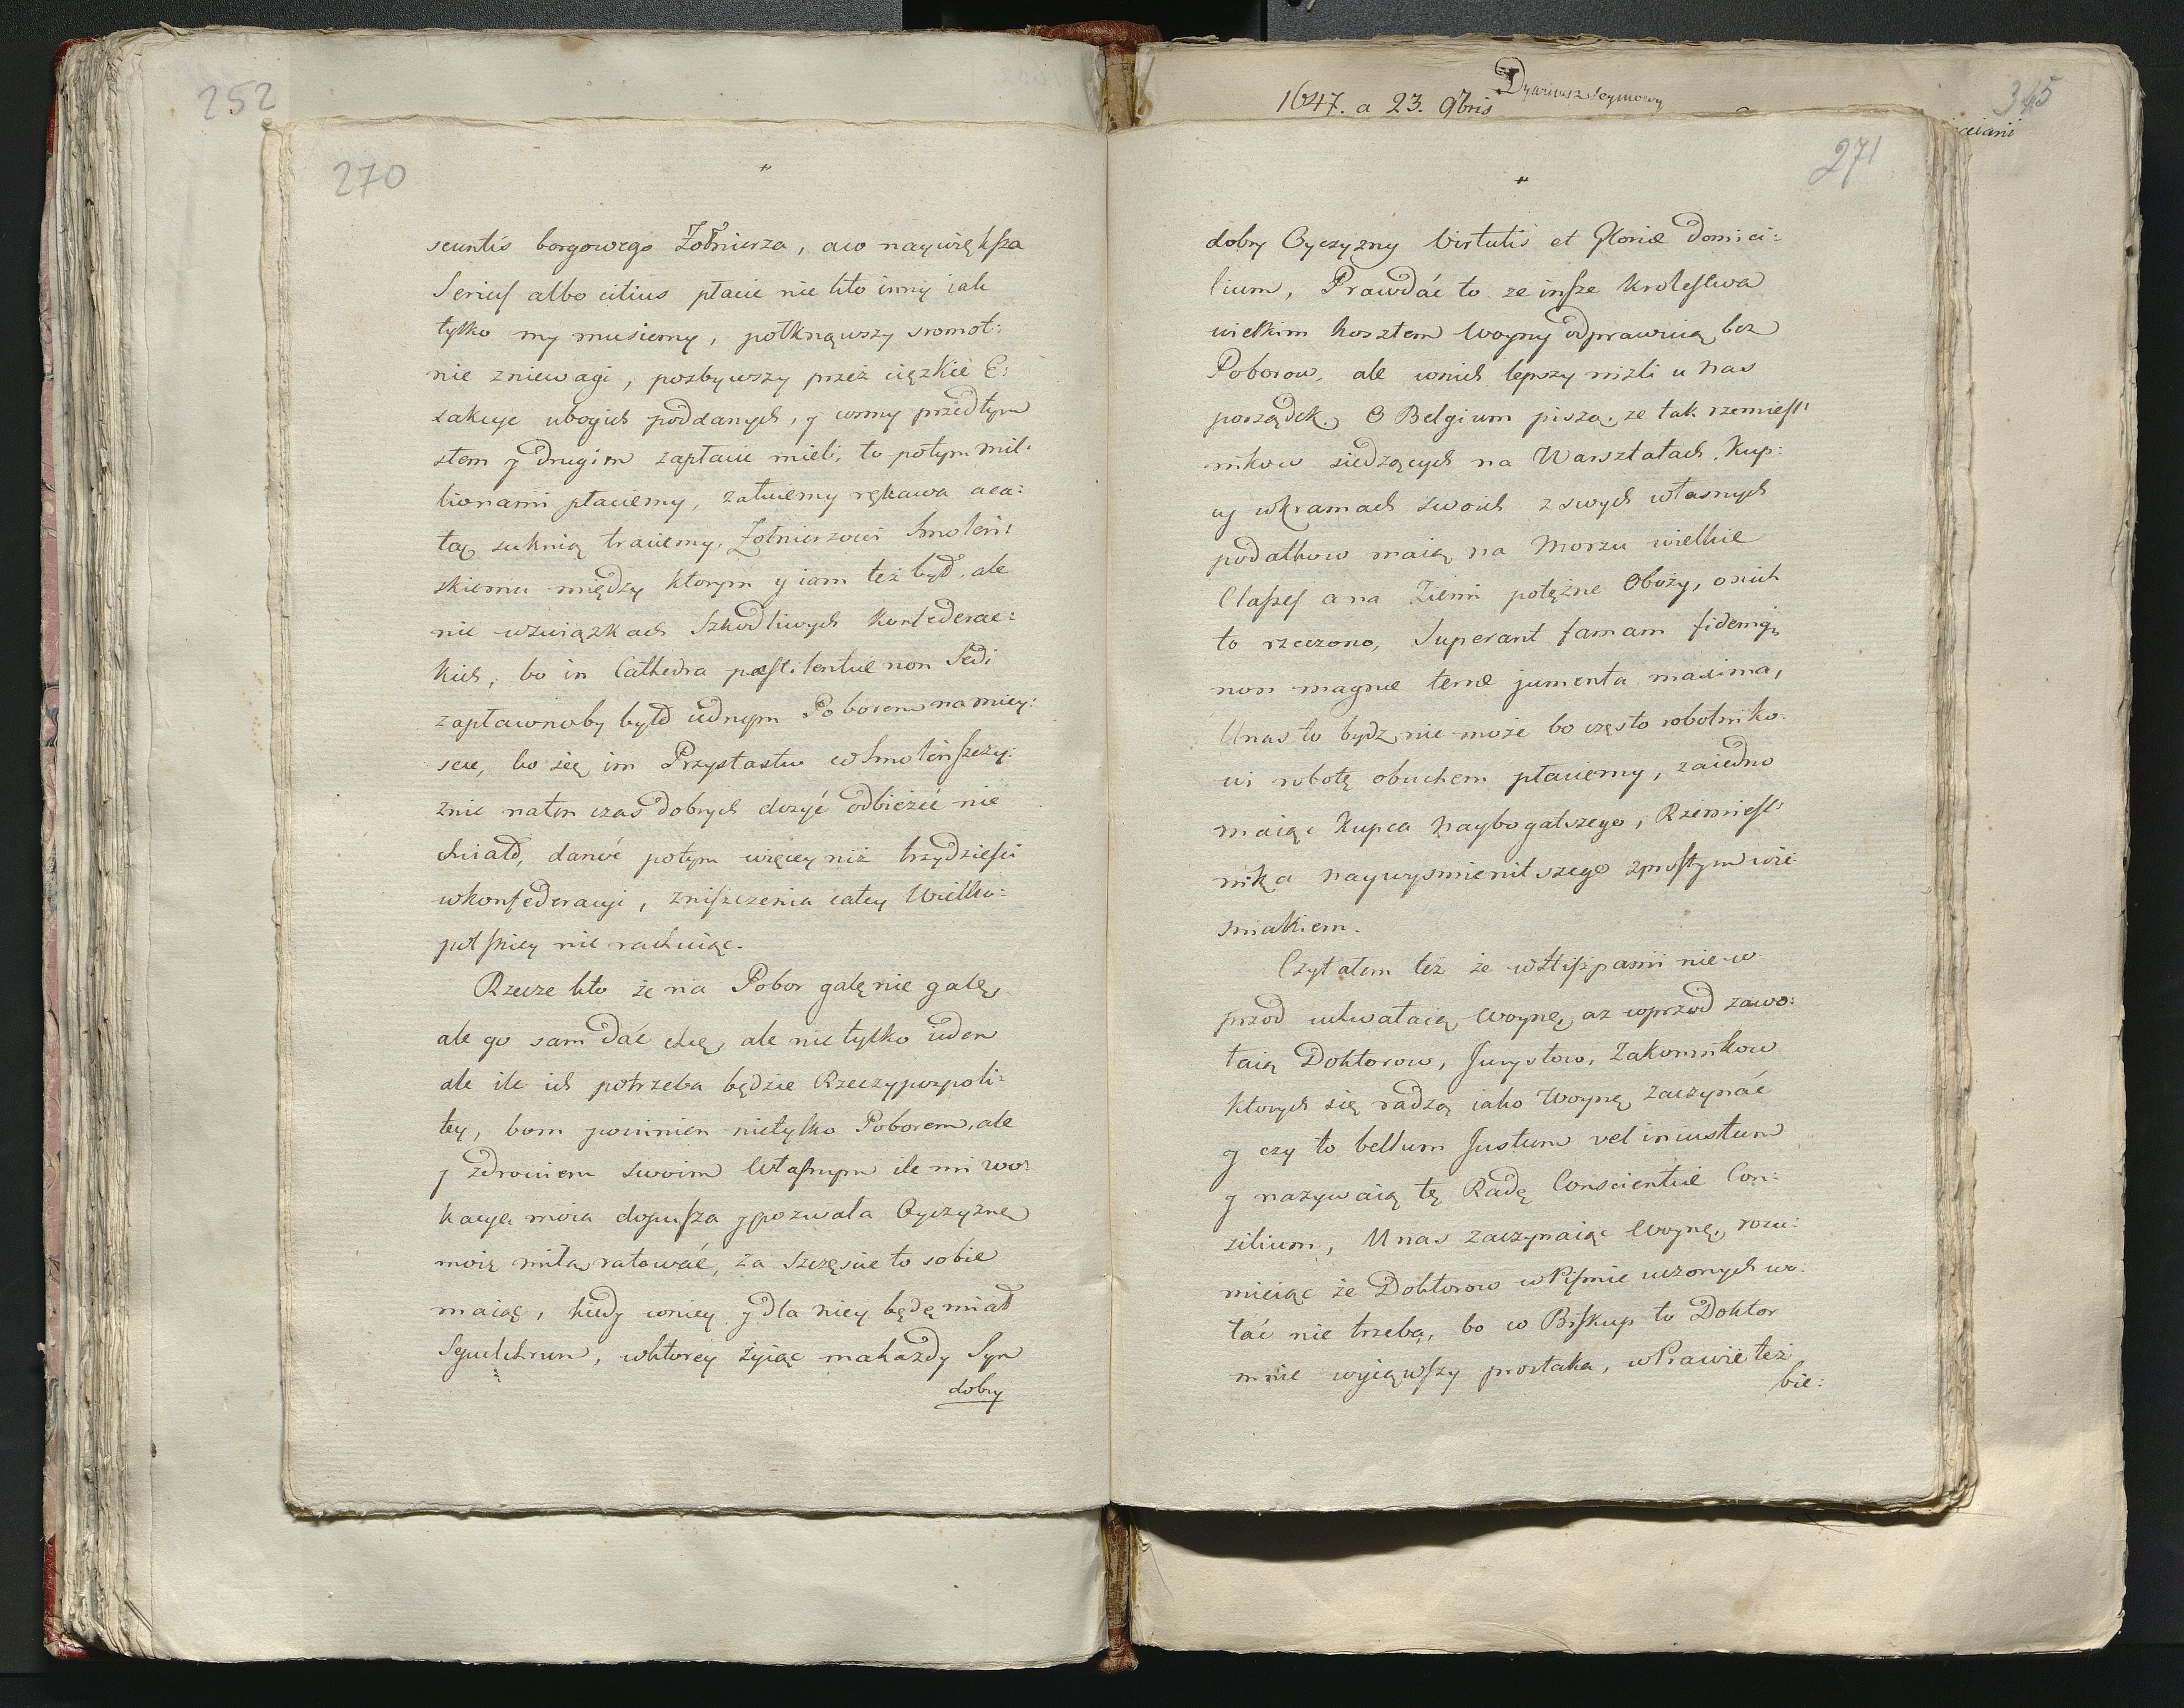 252
270
scuntis borgowego Żołnierza, a co naywiększa
Serius albo citius płacić nie kto inny iak
tylko my musiemy, połknąwszy sromot:
nie zniewagi, pozbywszy przez ciężkie E:
xakcye ubogich poddanych, y czym przedtym
stem y drugim zapłacić mieli, to potym mil:
lionami płaciemy, żałuiemy rękawa aca:
łą suknią traciemy. Żołnierzowi Smoleń:
skiemu między ktorym y iam też był, ale
nie wzwiązkach Szkodliwych Konfederac:
kich, bo in Cathedra pestilentiæ non Sedi
zapławnoby było iednym Poborem na miey:
scu, bo się im Przystastw w Smoleńszczy:
znie naten czas dobrych dosyć odbieżeć nie
chciało, dano potym więcey niż trzydzieści
wkonfederacyi, zniszczenia całey Wielko:
polskiey nie rachuiąc.
Rzecze kto że na Pobor galę nie galę,
ale go sam dać chcę, ale nie tylko ieden
ale ile ich potrzeba będzie Rzeczypospoli:
tey, bom powinien nietylko Poborem, ale
y zdrowiem swoim własnym ile mi wo:
kacya moia dopuszcza y pozwala Oyczyznę
moię miłą ratować, za szczęście to sobie
maiąc, kiedy wniey y dla niey będę miał
Sepulchrum, wktorey żyiąc ma każdy Syn
dobry
1647. a 23. 9bris
Dyaryusz Seymowy
345
271
dobry Oyczyzny Virtutis et Gloriæ domici:
lium, Prawdać to że insze Krolestwa
wielkim kosztem Woyny odprawuią bez
Poborow, ale wnich lepszy niżli u nas
porządek. O Belgium piszą, że tak rzemieśl:
nikow siedzących na Warsztatach, Kup:
cy wkramach swoich z swych własnych
podatkow maią na Morzu wielkie
Classes a na Ziemi potężne Obozy, o nich
to rzeczono, Superant famam fidemq;
non magnæ terræ jumenta maxima,
Unas to bydz nie może bo często robotniko:
wi robotę obuchem płaciemy, zaiedno
maiąc Kupca naybogatszego, Rzemieśl:
nika naywysmienitszego z prostym wie:
sniakiem.
Czytałem też że w Hiszpanii nie w
przod uchwalaią Woynę, aż wprzod zawo:
łaią Doktorow, Jurystow, Zakonnikow
ktorych się radzą iako Woynę zaczynać
y czy to bellum Justum vel iniustum
y nazywaią tę Radę Conscientiæ Con:
silium, Unas zaczynaiąc Woynę, rozu:
mieiąc że Doktorow w Pismie uczonych wo:
łać nie trzeba, bo co Biskup to Doktor
mnie wyiąwszy prostaka, w Prawie też
bie: